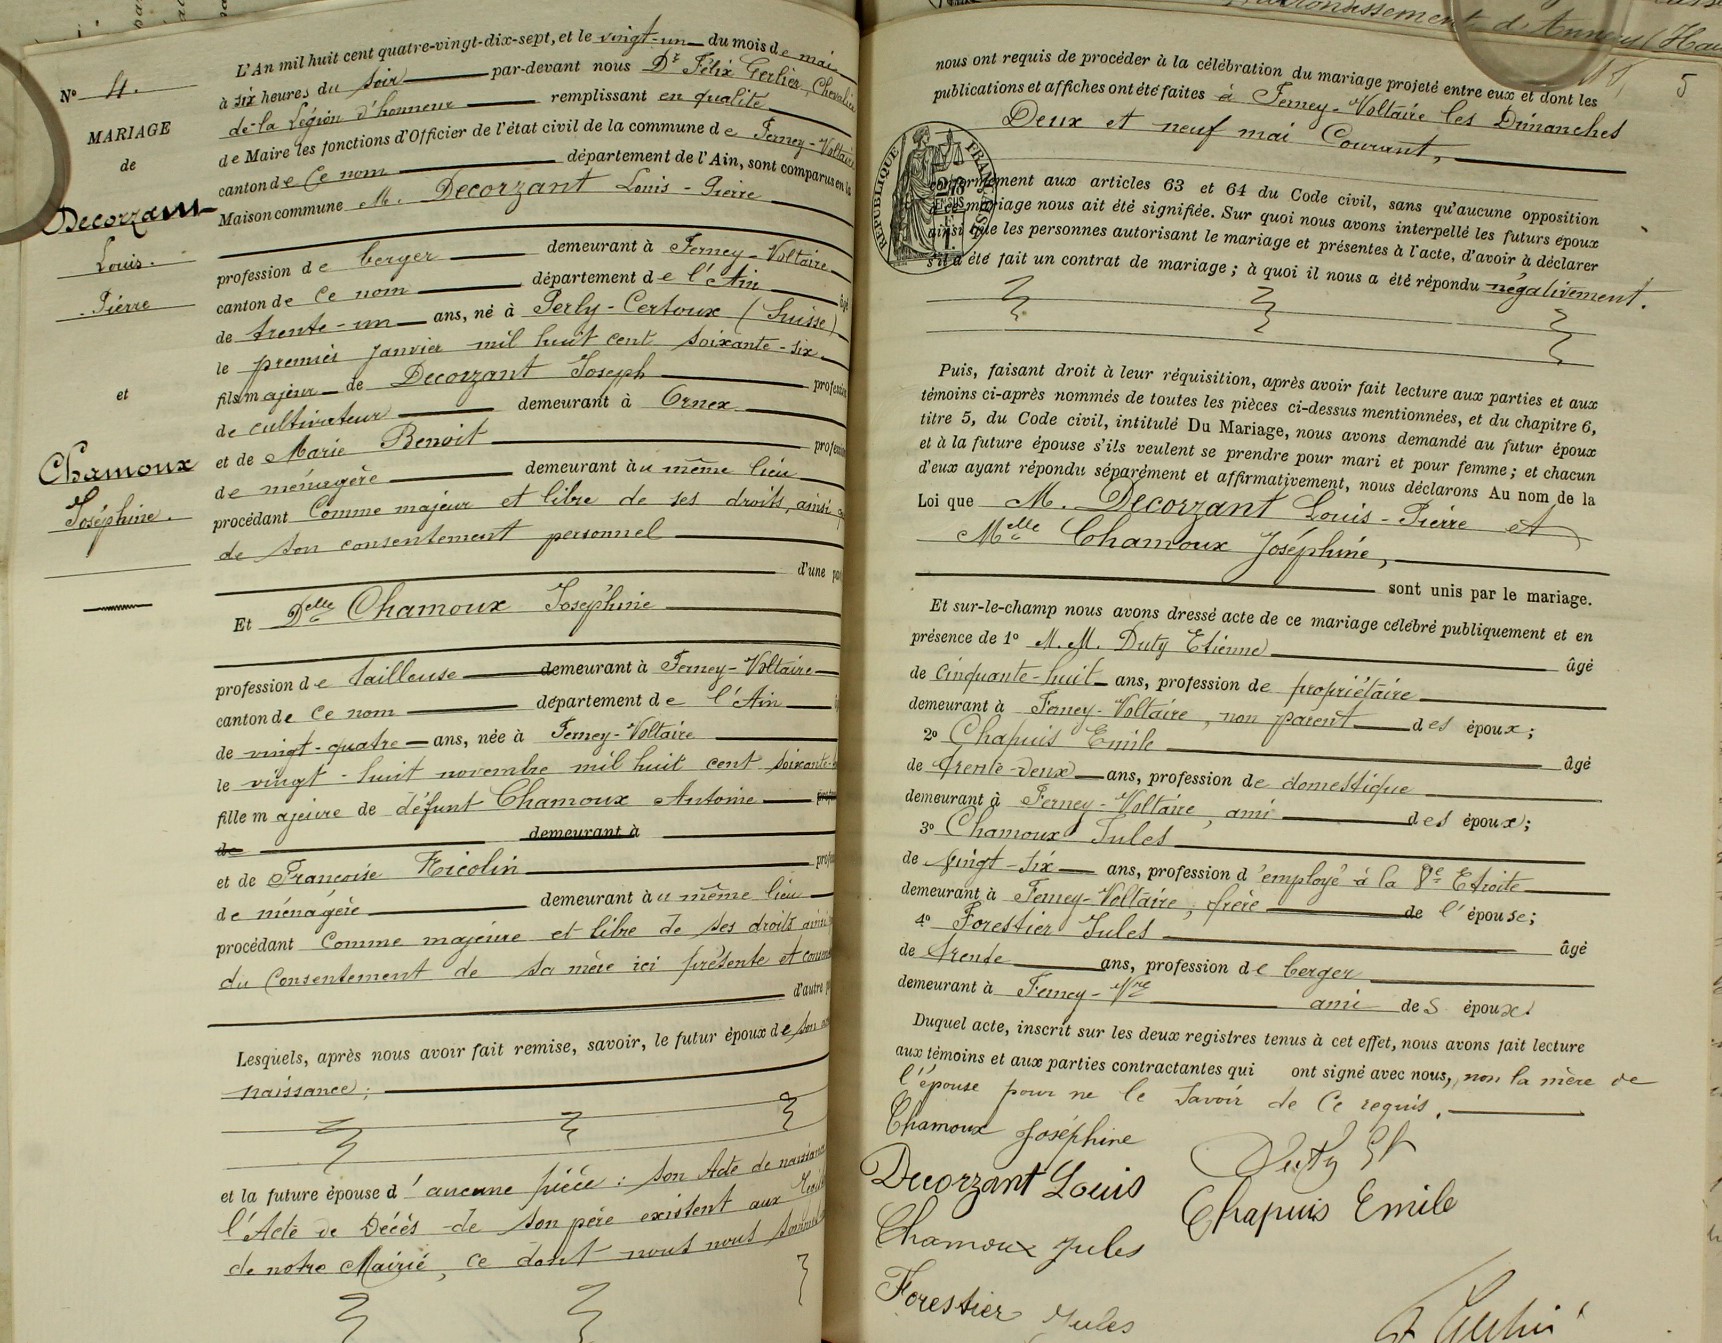 N° 4.
MARIAGE
de
Decorzant
Louis.
Pierre
et
Chamoux
Joséphine.
L'An mil huit cent quatre-vingt-dix-sept, et le vingt-un du mois de mai
à six heures du soir par-devant nous Dr Félix Gerlier, Chevalier
de la Légion d'honneur remplissant en qualité
de Maire les fonctions d'Officier de l'état civil de la commune de Ferney-Voltaire
canton de Ce nom département de l'Ain, sont comparus en la
Maison commune M. Decorzant Louis-Pierre
profession de berger demeurant à Ferney-Voltaire
canton de Ce nom département de l'Ain âgé
de trente-un ans, né à Perly-Certoux (Suisse)
le premier Janvier mil huit cent soixante-six
fils majeur de Decorzant Joseph profession
de cultivateur demeurant à Ornex
et de Marie Benoit profession
de ménagère demeurant àu même lieu
procédant Comme majeur et libre de ses droits, ainsi que
de son consentement personnel
d'une part
Et Delle Chamoux Joséphine
profession de tailleuse demeurant à Ferney-Voltaire
canton de Ce nom département de l'Ain
de vingt-quatre ans, née à Ferney-Voltaire
le vingt-huit novembre mil huit cent soixante-
fille majeure de défunt Chamoux Antoine
de demeurant à
et de Françoise Nicolin
de ménagère demeurant àu même lieu
procédant Comme majeure et libre de ses droits ainsi
du Consentement de sa mère ici présente et
d'autre part
Lesquels, après nous avoir fait remise, savoir, le futur époux de son
naissance;
et la future épouse d'aucune pièce: son Acte de naissance
l'Acte de Décès de son père existent aux
de notre Mairie, ce dont nous nous sommes
5
nous ont requis de procéder à la célébration du mariage projeté entre eux et dont les
publications et affiches ont été faites à Ferney-Voltaire les Dimanches
Deux et neuf mai Courant,
RÉPUBLIQUE FRANÇAISE
conformément aux articles 63 et 64 du Code civil, sans qu'aucune opposition
à ce mariage nous ait été signifiée. Sur quoi nous avons interpellé les futurs époux
ainsi que les personnes autorisant le mariage et présentes à l'acte, d'avoir à déclarer
s'il a été fait un contrat de mariage; à quoi il nous a été répondu négativement.
Puis, faisant droit à leur réquisition, après avoir fait lecture aux parties et aux
témoins ci-après nommés de toutes les pièces ci-dessus mentionnées, et du chapitre 6,
titre 5, du Code civil, intitulé Du Mariage, nous avons demandé au futur époux
et à la future épouse s'ils veulent se prendre pour mari et pour femme; et chacun
d'eux ayant répondu séparément et affirmativement, nous déclarons Au nom de la
Loi que M. Decorzant Louis-Pierre et
Melle Chamoux Joséphine,
sont unis par le mariage.
Et sur-le-champ nous avons dressé acte de ce mariage célébré publiquement et en
présence de 1° M.M. Duty Etienne âgé
de Cinquante-huit ans, profession de propriétaire
demeurant à Ferney-Voltaire, non parent des époux;
2° Chapuis Emile âgé
de trente-deux ans, profession de domestique
demeurant à Ferney-Voltaire, ami des époux;
3° Chamoux Jules
de Vingt-six ans, profession d'employé à la Ve Etroite
demeurant à Ferney-Voltaire, frère de l'épouse;
4° Forestier Jules âgé
de trente ans, profession de berger
demeurant à Ferney-Vre ami des époux.
Duquel acte, inscrit sur les deux registres tenus à cet effet, nous avons fait lecture
aux témoins et aux parties contractantes qui ont signé avec nous, non la mère de
l'épouse pour ne le Savoir de Ce requis.
Chamoux Joséphine
Duty Et
Decorzant Louis
Chapuis Emile
Chamoux Jules
Forestier Jules